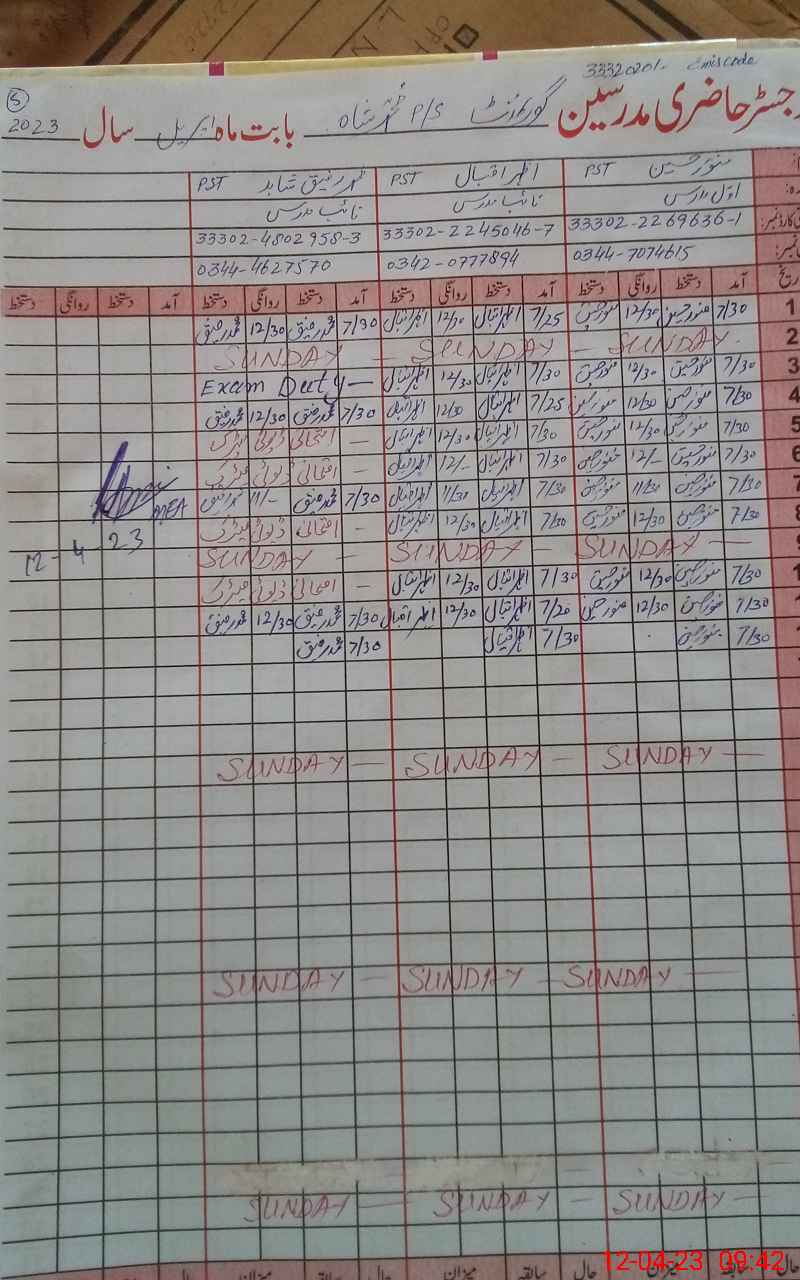 33320201- Emiscode
رجسٹر حاضری مدرسین گورنمنٹ P/S محمد شاہ بابت ماہ اپریل سال 2023
5
منور حسین PST اظہر اقبال PST محمد رفیق شاہد PST
اول مدرس نائب مدرس نائب مدرس
33302-2269636-1 33302-2245046-7 33302-4802958-3
0344-7074615 0342-0777894 0344-4627570
تاریخ آمد دستخط روانگی دستخط آمد دستخط روانگی دستخط آمد دستخط روانگی دستخط آمد دستخط روانگی دستخط
1 7/30 منور حسین 12/30 منور حسین 7/25 اظہر اقبال 12/30 اظہر اقبال 7/30 محمد رفیق 12/30 محمد رفیق
2 SUNDAY - SUNDAY - SUNDAY
3 7/30 منور حسین 12/30 منور حسین 7/30 اظہر اقبال 12/30 اظہر اقبال Exam Duty —
4 7/30 منور حسین 12/30 منور حسین 7/25 اظہر اقبال 12/30 اظہر اقبال 7/30 محمد رفیق 12/30 محمد رفیق
5 7/30 منور حسین 12/30 منور حسین 7/30 اظہر اقبال 12/30 اظہر اقبال — امتحانی ڈیوٹی میٹرک
6 7/30 منور حسین 12/- منور حسین 7/30 اظہر اقبال 12/- اظہر اقبال — امتحانی ڈیوٹی میٹرک
7 7/30 منور حسین 11/30 منور حسین 7/30 اظہر اقبال 11/30 اظہر اقبال 7/30 محمد رفیق 11/- محمد رفیق
MEA
8 7/30 منور حسین 12/30 منور حسین 7/30 اظہر اقبال 12/30 اظہر اقبال — امتحانی ڈیوٹی میٹرک
12-4-23
SUNDAY - SUNDAY - SUNDAY —
7/30 منور حسین 12/30 منور حسین 7/30 اظہر اقبال 12/30 اظہر اقبال — امتحانی ڈیوٹی میٹرک
7/30 منور حسین 12/30 منور حسین 7/20 اظہر اقبال 12/30 اظہر اقبال 7/30 محمد رفیق 12/30 محمد رفیق
7/30 منور حسین 7/30 اظہر اقبال 7/30 محمد رفیق
SUNDAY — SUNDAY — SUNDAY —
SUNDAY — SUNDAY — SUNDAY —
SUNDAY — SUNDAY — SUNDAY —
حال سابقہ میزان حال سابقہ میزان حال سابقہ میزان حال
12-04-23 09:42